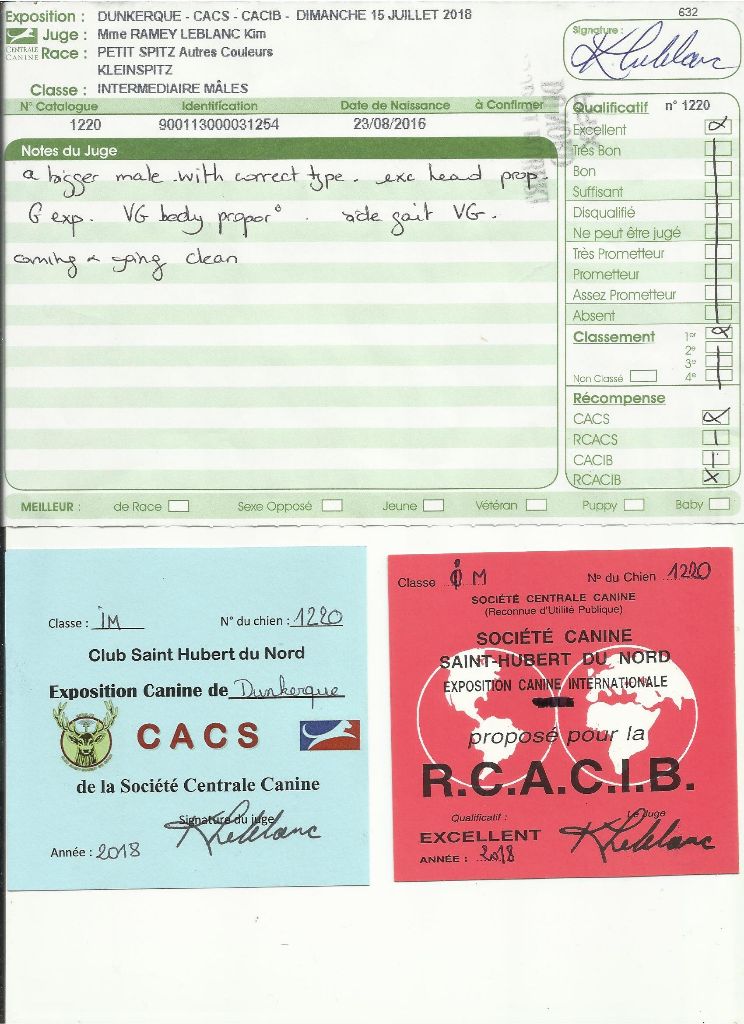 Exposition : DUNKERQUE - CACS - CACIB - DIMANCHE 15 JUILLET 2018
632
Juge : Mme RAMEY LEBLANC Kim
CENTRALE CANINE
Race : PETIT SPITZ Autres Couleurs
KLEINSPITZ
Classe : INTERMEDIAIRE MÂLES
Signature :
KLeblanc
N° Catalogue Identification Date de Naissance à Confirmer
1220 900113000031254 23/08/2016
Notes du Juge
a bigger male . with correct type . exc head prop.
G exp. VG body propor° . side gait VG.
coming & going clean
Qualificatif n° 1220
Excellent
Très Bon
Bon
Suffisant
Disqualifié
Ne peut être jugé
Très Prometteur
Prometteur
Assez Prometteur
Absent
Classement 1er
2e
3e
Non Classé 4e
Récompense
CACS
RCACS
CACIB
RCACIB X
MEILLEUR : de Race Sexe Opposé Jeune Vétéran Puppy Baby
Classe : IM N° du chien : 1220
Club Saint Hubert du Nord
Exposition Canine de Dunkerque
CACS
de la Société Centrale Canine
Signature du juge
KLeblanc
Année : 2018
Classe IM N° du Chien 1220
SOCIÉTÉ CENTRALE CANINE
(Reconnue d'Utilité Publique)
SOCIÉTÉ CANINE
SAINT-HUBERT DU NORD
EXPOSITION CANINE INTERNATIONALE
proposé pour la
R.C.A.C.I.B.
Qualificatif : Le Juge
EXCELLENT KLeblanc
ANNÉE : 2018